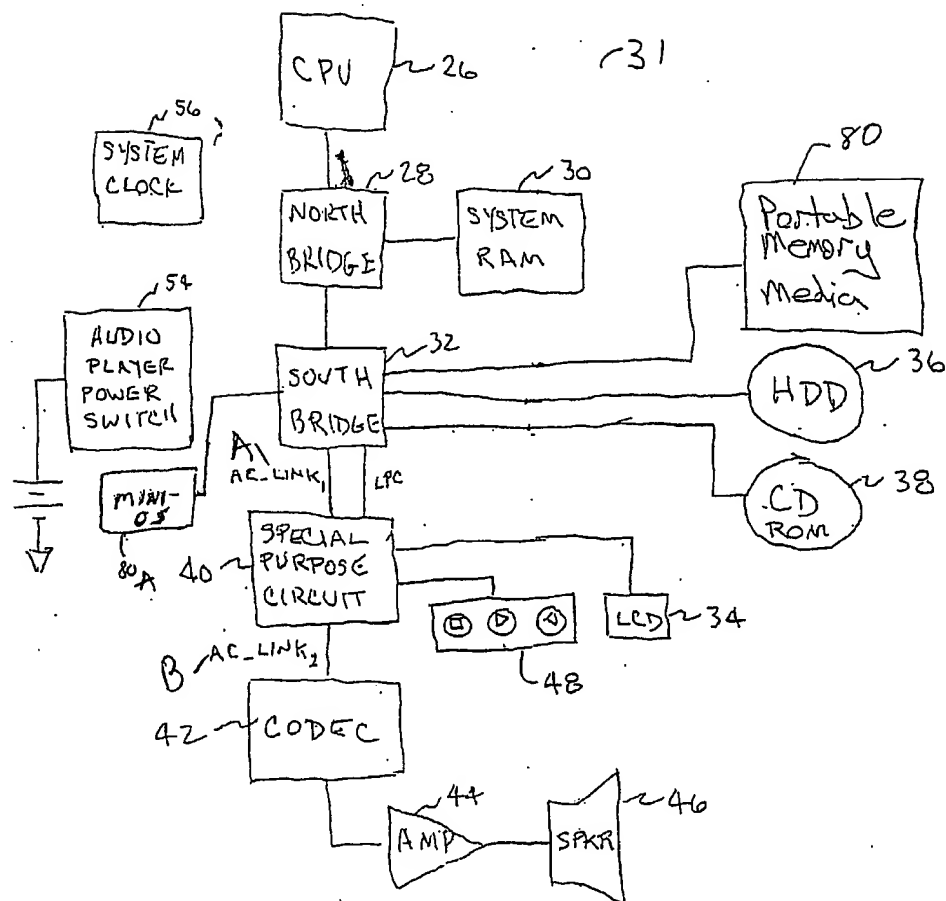 CPU
26
31
56
SYSTEM
CLOCK
28
NORTH
BRIDGE
30
SYSTEM
RAM
80
Portable
Memory
Media
54
AUDIO
PLAYER
POWER
SWITCH
32
SOUTH
BRIDGE
36
HDD
38
CD
ROM
MINI-
OS
80A
A
AC_LINK1
LPC
40
SPECIAL
PURPOSE
CIRCUIT
48
LCD
34
B
AC_LINK2
42
CODEC
44
AMP
46
SPKR